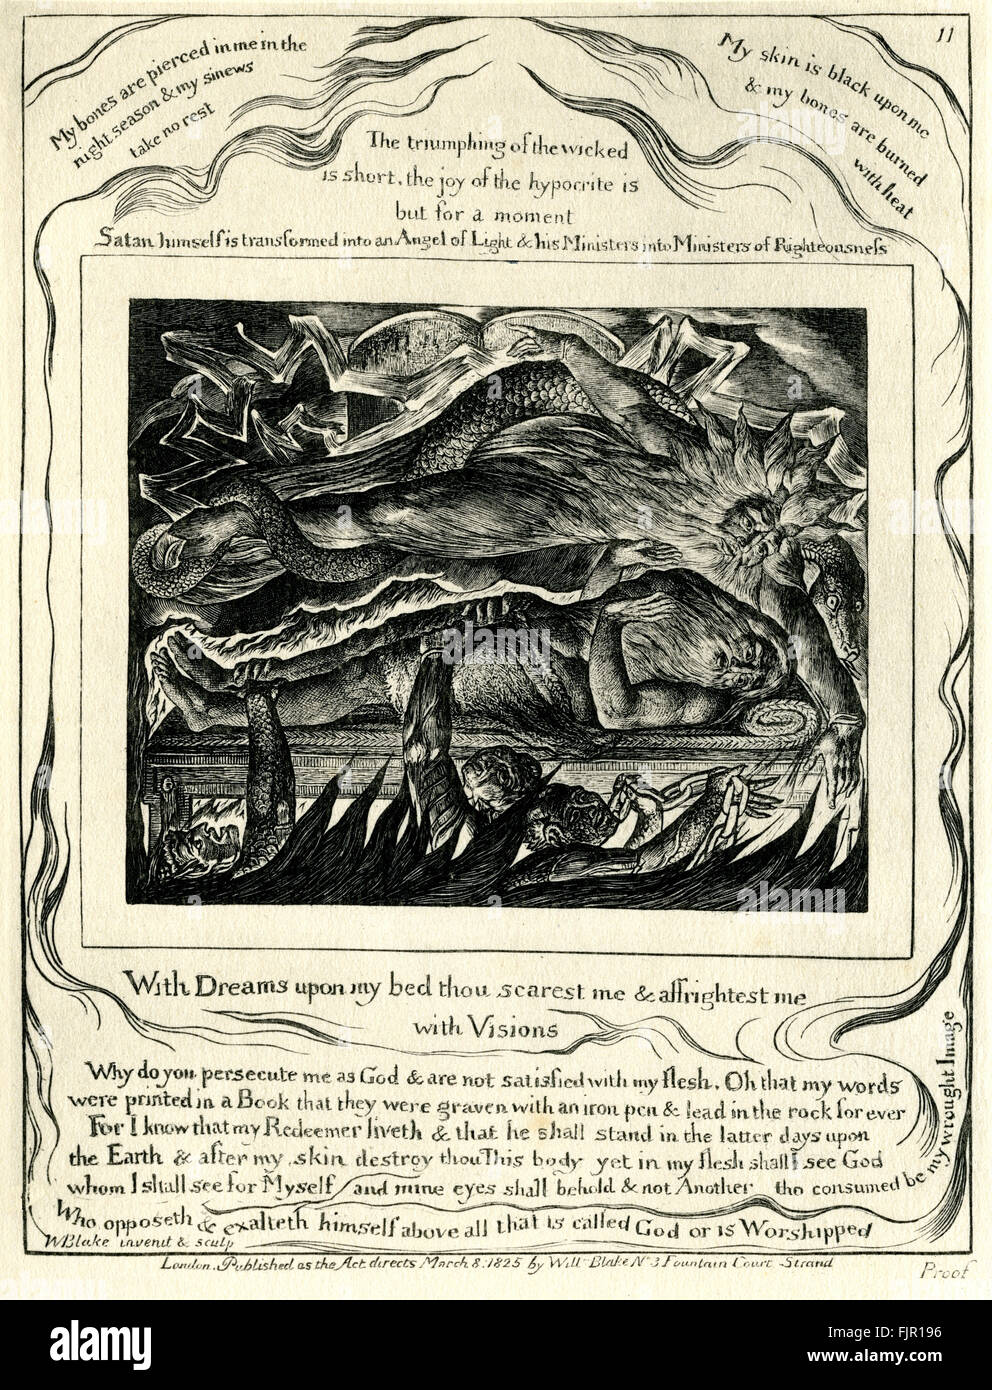 11
My bones are pierced in me in the
night season & my sinews
take no rest
My skin is black upon me
& my bones are burned
with heat
The triumphing of the wicked
is short, the joy of the hypocrite is
but for a moment
Satan himself is transformed into an Angel of Light & his Ministers into Ministers of Righteousneſs
With Dreams upon my bed thou scarest me & affrightest me
with Visions
Why do you persecute me as God & are not satisfied with my flesh. Oh that my words
were printed in a Book that they were graven with an iron pen & lead in the rock for ever
For I know that my Redeemer liveth & that he shall stand in the latter days upon
the Earth & after my skin destroy thou This body yet in my flesh shall I see God
whom I shall see for Myself and mine eyes shall behold & not Another tho consumed be my wrought Image
Who opposeth & exalteth himself above all that is called God or is Worshipped
WBlake invenit & sculp
London. Published as the Act directs March 8. 1825 by Will Blake No 3 Fountain Court Strand
Proof
alamy
Image ID: FJR196
www.alamy.com